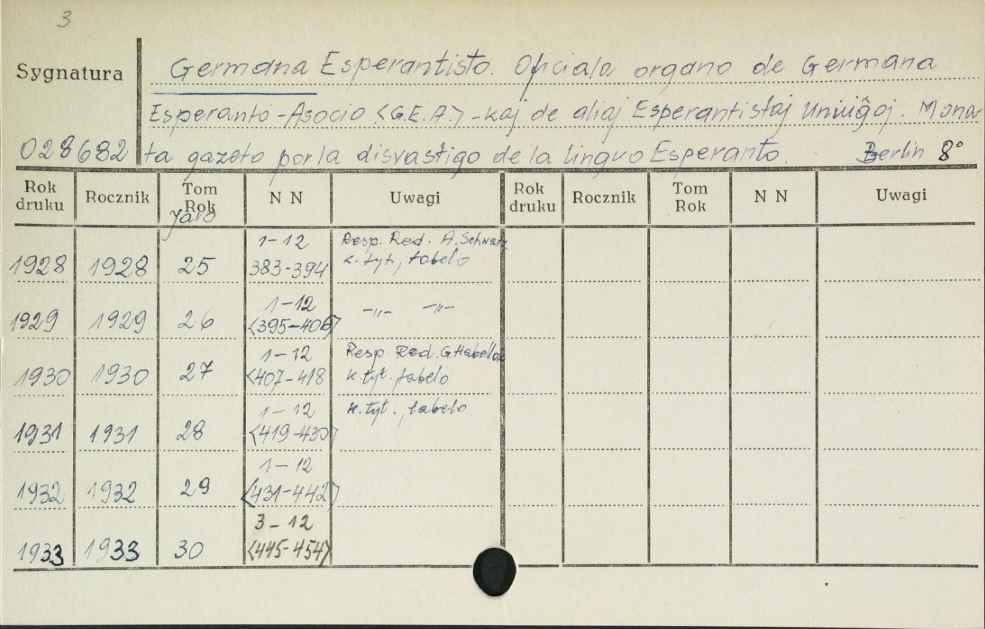 3
Sygnatura
Germana Esperantisto. Oficiala organo de Germana
Esperanto-Asocio <G.E.A.> - kaj de aliaj Esperantistaj Unuiĝoj. Mona-
028682 ta gazeto por la disvastigo de la lingvo Esperanto. Berlin 8°
Rok druku Rocznik Tom Rok Jaro N N Uwagi Rok druku Rocznik Tom Rok N N Uwagi
1928 1928 25 1-12 383-394 Resp. Red. A. Schwarz k. tyt., tabelo
1929 1929 26 1-12 <395-406> -„- -„-
1930 1930 27 1-12 <407-418 Resp. Red. G. Habellok k. tyt. tabelo
1931 1931 28 1-12 <419-430> k. tyt., tabelo
1932 1932 29 1-12 <431-442>
1933 1933 30 3-12 <445-454>